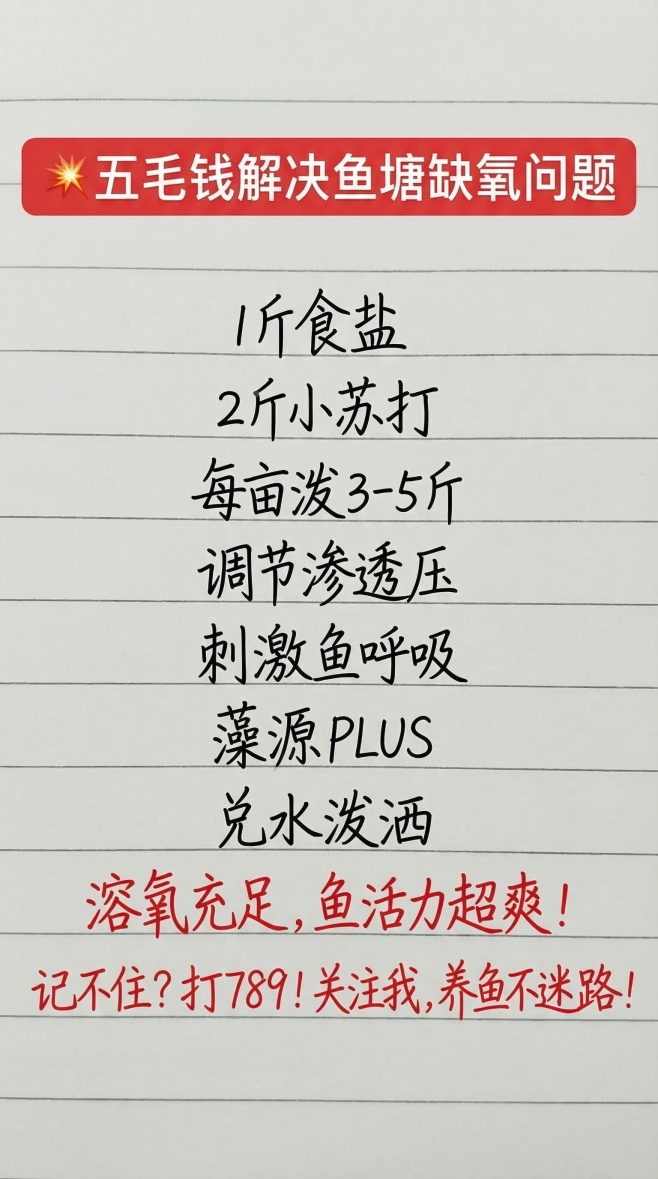 💥五毛钱解决鱼塘缺氧问题
1斤食盐
2斤小苏打
每亩泼3-5斤
调节渗透压
刺激鱼呼吸
藻源PLUS
兑水泼洒
溶氧充足,鱼活力超爽!
记不住?打789!关注我,养鱼不迷路!